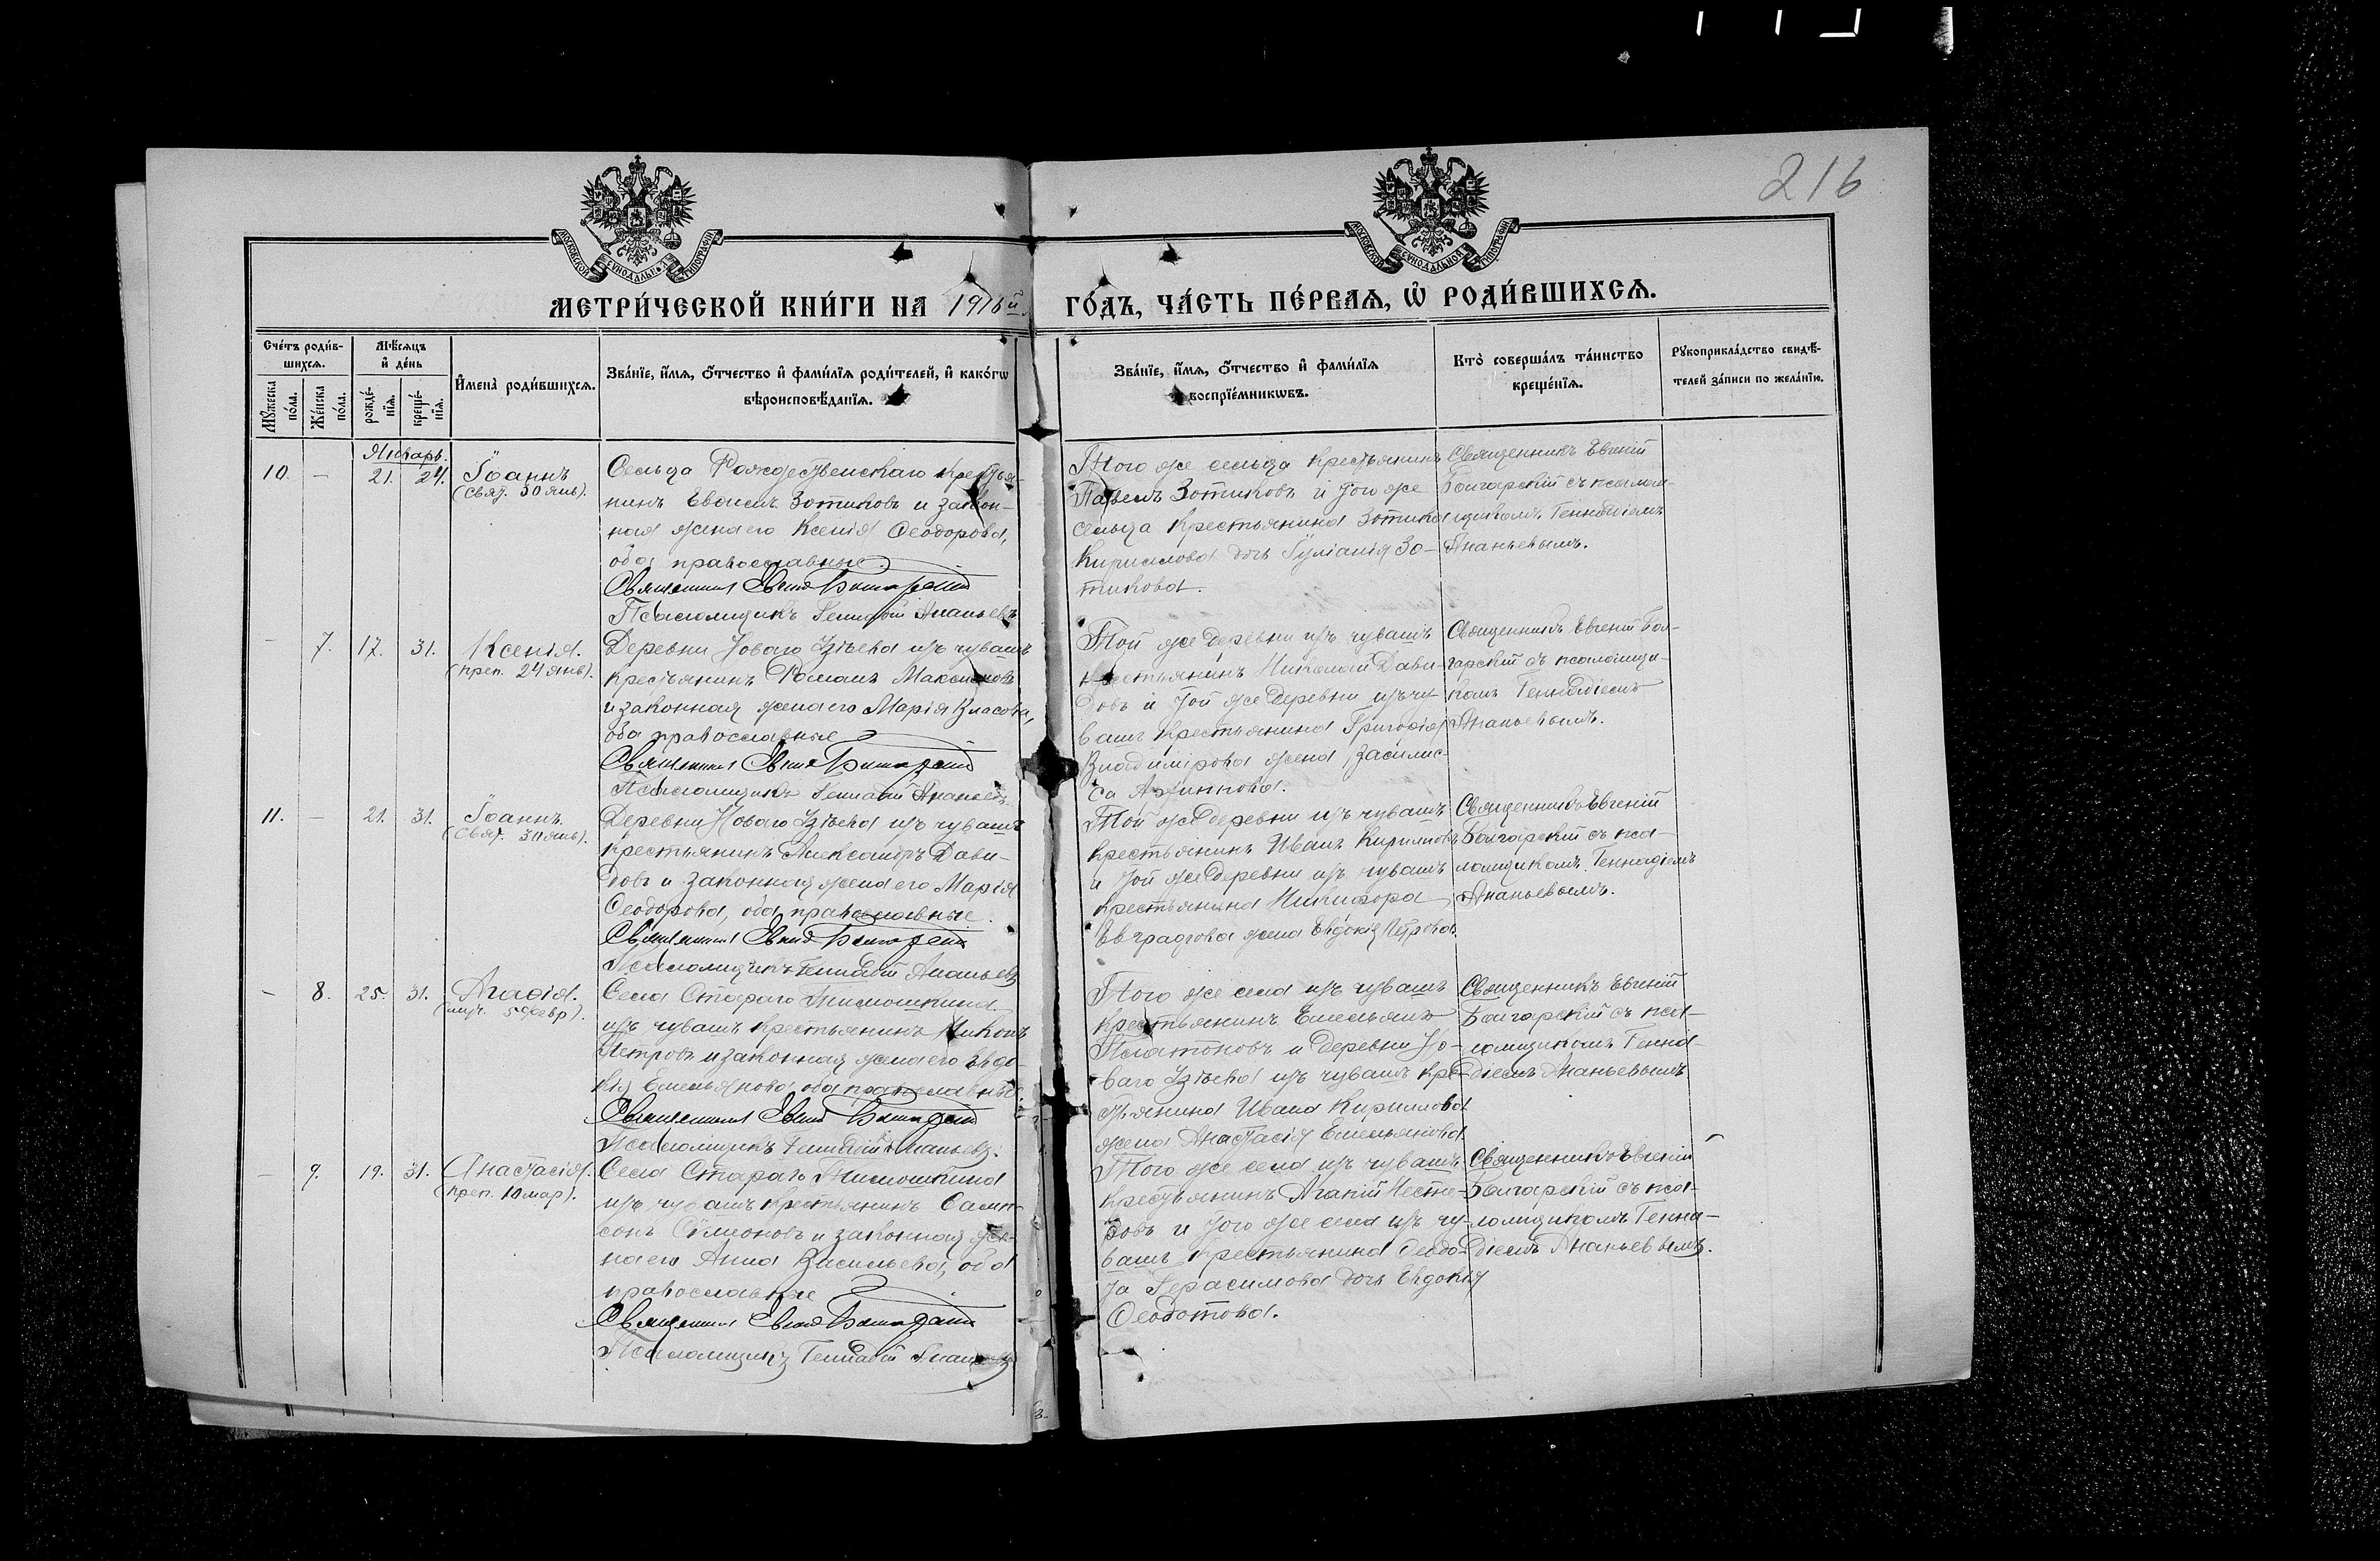 216
МОСКОВСКОЙ СѴНОДАЛЬНОЙ ТИПОГРАФИИ
МОСКОВСКОЙ СѴНОДАЛЬНОЙ ТИПОГРАФИИ
МЕТРИ́ЧЕСКОЙ КНИ́ГИ НА 1916й ГО́ДЪ, ЧА́СТЬ ПЕ́РВАѦ, Ѽ РОДИ́ВШИХСѦ.
Сче́тъ роди́в-
шихсѧ.
Мꙋ́жеска
по́ла.
Же́нска
по́ла.
Мѣ́сѧцъ
и҆ де́нь
рожде́-
нїѧ.
креще́-
нїѧ.
И҆мена̀ роди́вшихсѧ.
Зва́нїе, и҆́мѧ, ѻ҆́тчество и҆ фами́лїѧ роди́телей, и҆ како́гѡ
вѣроисповѣ́данїѧ.
Зва́нїе, и҆́мѧ, ѻ҆́тчество и҆ фами́лїѧ
воспрїе́мникѡвъ.
Кто̀ соверша́лъ та́инство
креще́нїѧ.
Рꙋкоприкла́дство свидѣ́-
телей за́писи по жела́нїю.
Январь.
10. – 21. 24. Іоаннъ
(свят. 30 янв).
Сельца Рождественскаго крестья-
нинъ Зотиковъ и закон-
ная жена его Ксенія Ѳеодорова,
оба православные.
Священникъ Евгеній Болгарскій
Псаломщикъ Геннадій Ананьевъ
Того же сельца крестьянинъ
Павелъ Зотиковъ и того же
сельца крестьянина Зотика
Кириллова дочь Іуліанія Зо-
тикова.
Священникъ Евгеній
Болгарскій съ псалом-
щикомъ Геннадіемъ
Ананьевымъ.
– 7. 17. 31. Ксенія.
(преп. 24 янв).
Деревни Новаго Узѣева изъ чувашъ
крестьянинъ Романъ Максимовъ
и законная жена его Марія Власова,
оба православные
Священникъ Евгеній Болгарскій
Псаломщикъ Геннадій Ананьевъ.
Той же деревни изъ чувашъ
крестьянинъ Николай Дави-
довъ и той же деревни изъ чу-
вашъ крестьянина Григорія
Владимірова жена Васелис-
са
Священникъ Евгеній Бол-
гарскій съ псаломщи-
комъ Геннадіемъ
Ананьевымъ.
11. – 21. 31. Іоаннъ.
(свят. 30 янв).
Деревни Новаго Узѣева изъ чувашъ
крестьянинъ Александръ Дави-
довъ и законная жена его Марія
Ѳеодорова, оба православные.
Священникъ Евгеній Болгарскій
Псаломщикъ Геннадій Ананьевъ
Той же деревни изъ чувашъ
крестьянинъ Иванъ Кирилловъ
и той же деревни изъ чувашъ
крестьянина Никифора
Евграфова жена Евдокія Петрова.
Священникъ Евгеній
Болгарскій съ пса-
ломщикомъ Геннадіемъ
Ананьевымъ.
– 8. 25. 31. Агаѳія.
(муч. 5 февр).
Села Стараго
изъ чувашъ крестьянинъ Никонъ
Петровъ и законная жена его Евдо-
кія Емельянова, оба православные.
Священникъ Евгеній Болгарскій
Псаломщикъ Геннадій Ананьевъ.
Того же села изъ чувашъ
крестьянинъ Емельянъ
Платоновъ и деревни Но-
ваго Узѣева изъ чувашъ кре-
стьянина Ивана Кириллова
жена Анастасія Емельянова.
Священникъ Евгеній
Болгарскій съ пса-
ломщикомъ Генна-
діемъ Ананьевымъ.
– 9. 19. 31. Анастасія.
(преп. 10 мар).
Села Стараго
изъ чувашъ крестьянинъ Самп-
сонъ Сѵмеоновъ и законная же-
на его Анна Васильева, оба
православные
Священникъ Евгеній Болгарскій
Псаломщикъ Геннадій Ананьевъ
Того же села изъ чувашъ
крестьянинъ Агапій
и того же села изъ чу-
вашъ крестьянина Ѳеодо-
та Герасимова дочь Евдокія
Ѳеодотова.
Священникъ Евгеній
Болгарскій съ пса-
ломщикомъ Генна-
діемъ Ананьевымъ.